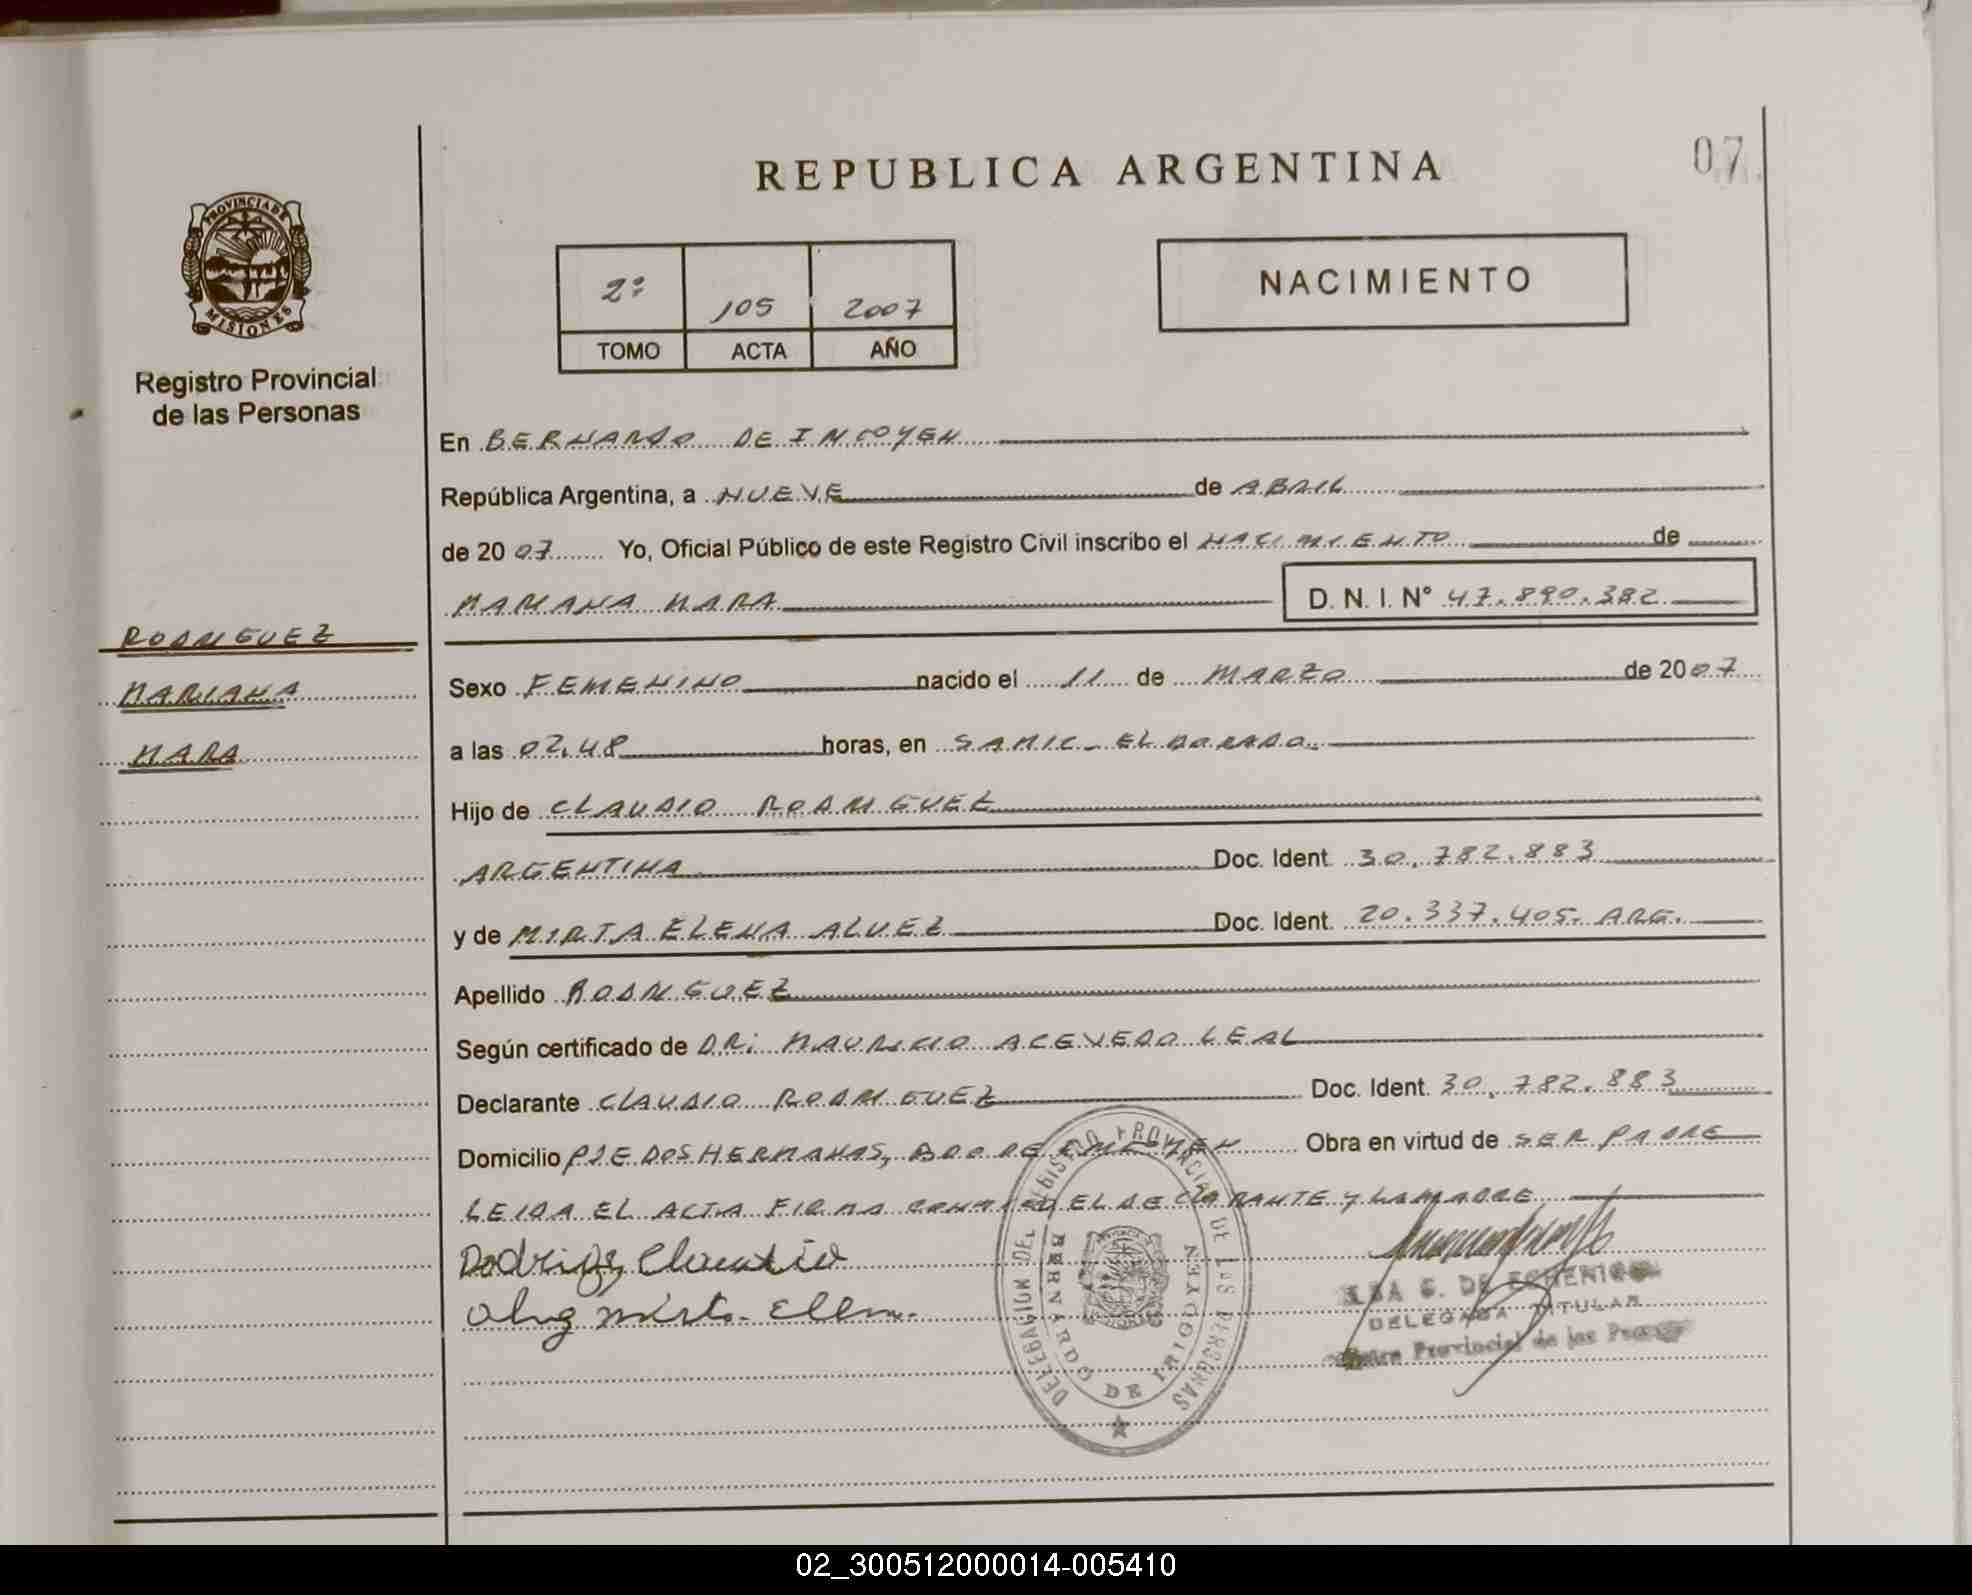 REPUBLICA ARGENTINA
07
PROVINCIA DE
MISIONES
Registro Provincial
de las Personas
2º 105 2007
TOMO ACTA AÑO
NACIMIENTO
En BERNARDO DE IRIGOYEN
República Argentina, a NUEVE de ABRIL
de 2007 Yo, Oficial Público de este Registro Civil inscribo el NACIMIENTO de
MARIANA MARA D. N. I. N° 47.890.382
RODRIGUEZ
MARIANA
MARA
Sexo FEMENINO nacido el 11 de MARZO de 2007
a las 02.48 horas, en SAMIC - ELDORADO.
Hijo de CLAUDIO RODRIGUEZ
ARGENTINA Doc. Ident. 30.782.883
y de MIRTA ELENA ALVEZ Doc. Ident. 20.337.405- ARG.
Apellido RODRIGUEZ
Según certificado de DR: MAURICIO ACEVEDO LEAL
Declarante CLAUDIO RODRIGUEZ Doc. Ident. 30.782.883
Domicilio PJE DOS HERMANAS, BDO DE IRIGOYEN Obra en virtud de SER PADRE
LEIDA EL ACTA FIRMA CONMIGO EL DECLARANTE Y LA MADRE
Rodrigz Claudio
Alvez Mirta Elena
DELEGACION DEL REGISTRO PROVINCIAL DE LAS PERSONAS
BERNARDO DE IRIGOYEN
DELEGADA TITULAR
Provincial de las
02_300512000014-005410